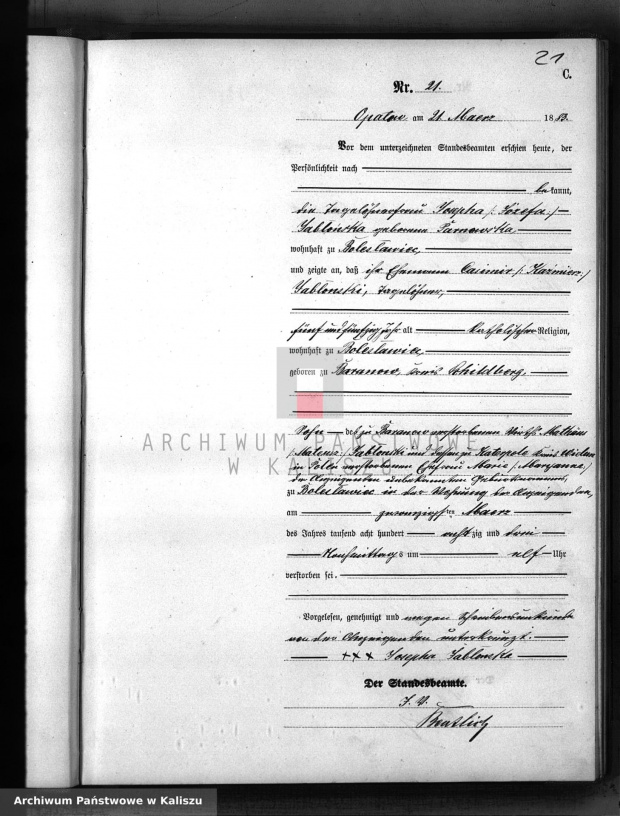 21
C.
Nr. 21.
Opatow am 21. Maerz 1883.
Vor dem unterzeichneten Standesbeamten erschien heute, der
Persönlichkeit nach
bekannt,
die Tagelöhnerfrau Josepha /: Józefa :/
Jabłońska geborene Tarnowska
wohnhaft zu Bolesławiec,
und zeigte an, daß ihr Ehemann Casimir /: Kazimierz :/
Jabłoński, Tagelöhner,
fünf und fünfzig Jahr alt katholischer Religion,
wohnhaft zu Bolesławiec
geboren zu Baranow, Kreis Schildberg.
Sohn des zu Baranow verstorbenen Mathias
Jablonski und dessen zu Kreis
in Polen verstorbenen Ehefrau Maria /: Maryanna :/
der Anzeigenden unbekannten Geburtsnamens,
zu Bolesławiec in der Wohnung der Anzeigenden,
am zwanzigsten Maerz
des Jahres tausend acht hundert achtzig und drei
Nachmittags um elf Uhr
verstorben sei.
Vorgelesen, genehmigt und wegen Schreibensunkunde
von der Anzeigenden unterkreuzt.
+++ Josepha Jablonska
Der Standesbeamte.
I. V.
ARCHIWUM PAŃSTWOWE
W KALISZU
Archiwum Państwowe w Kaliszu